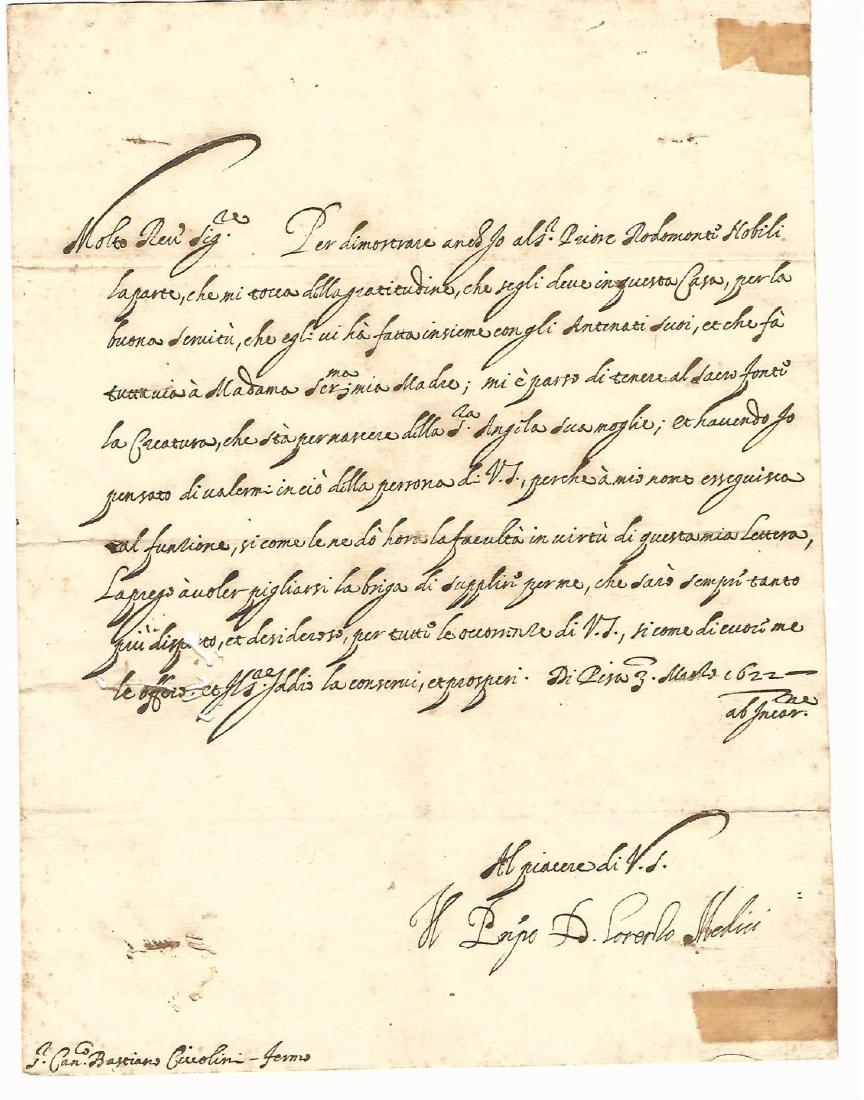 Molto Rev.^do Sig.^re Per dimostrare anch'Io al S.^r Priore Rodomonte Nobili
la parte, che mi tocca della gratitudine, che segli deve in questa Casa, per la
buona servitù, che egli vi hà fatta insieme con gli Antenati suoi, et che fà
tuttavia à Madama Ser.^ma mia Madre; mi è parso di tenere al sacro fonte
la Creatura, che stà per nascere della S.^ra Angila sua moglie; et havendo Io
pensato di valermi in ciò della persona di V.S., perche à mio nome esseguisca
tal funzione, si come le ne dò hora la facultà in virtù di questa mia lettera,
La prego à voler pigliarsi la briga di supplire per me, che sarò sempre tanto
più disposto, et desideroso, per tutte le occorrenze di V.S., si come di cuore me
le offero. et Iddio la conservi, et prosperi. Di Pisa 3. Marzo 1622
ab Incar.^ne
Al piacere di V.S.
Il Pn'pe D. Lorenzo Medici
S.^r Can.^co Bastiano Ciccolini - Fermo